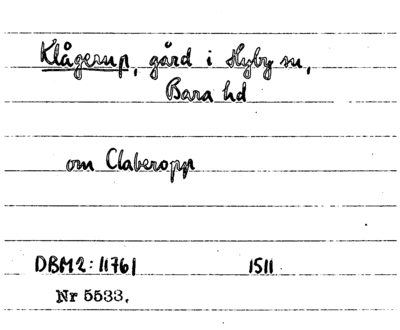 Klågerup, gård i Hyby sn,
Bara hd
om Claberopp
DBM2: 11761 1511
Nr 5533.